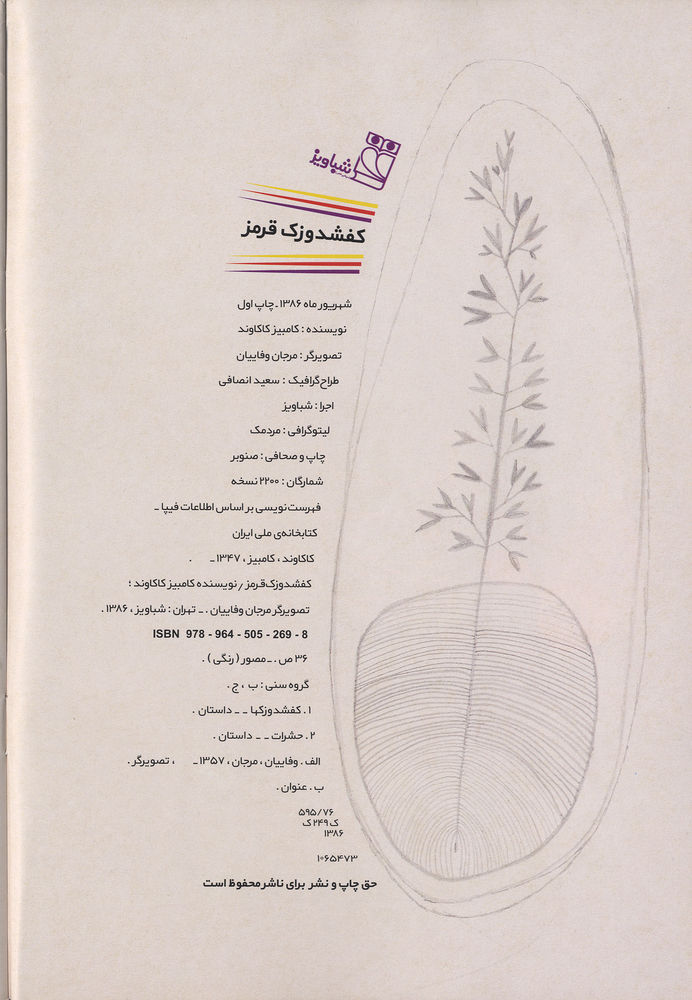 شباویز
کفشدوزک قرمز
شهریور ماه ۱۳۸۶ ـ چاپ اول
نویسنده : کامبیز کاکاوند
تصویرگر : مرجان وفاییان
طراح‌گرافیک : سعید انصافی
اجرا : شباویز
لیتوگرافی : مردمک
چاپ و صحافی : صنوبر
شمارگان : ۲۲۰۰ نسخه
فهرست‌نویسی بر اساس اطلاعات فیپا ـ
کتابخانه‌ی ملی ایران
کاکاوند ، کامبیز ، ۱۳۴۷ ـ .
کفشدوزک‌قرمز / نویسنده کامبیز کاکاوند ؛
تصویرگر مرجان وفاییان . ـ تهران : شباویز ، ۱۳۸۶ .
ISBN 978 - 964 - 505 - 269 - 8
۳۶ ص . ـ مصور ( رنگی ) .
گروه سنی : ب ، ج .
۱ . کفشدوزکها ـ ـ داستان .
۲ . حشرات ـ ـ داستان .
الف . وفاییان ، مرجان ، ۱۳۵۷ ـ ، تصویرگر .
ب . عنوان .
۵۹۵/۷۶
ک ۲۴۹ ک
۱۳۸۶
۱۰۶۵۴۷۳
حق چاپ و نشر برای ناشر محفوظ است